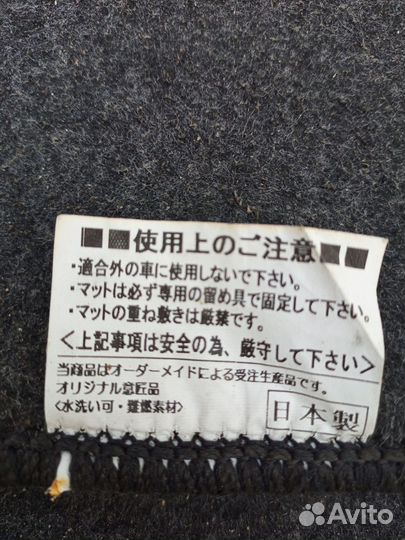 ■■使用上のご注意■■
・適合外の車に使用しないで下さい。
・マットは必ず専用の留め具で固定して下さい。
・マットの重ね敷きは厳禁です。
<上記事項は安全の為、厳守して下さい>
当商品はオーダーメイドによる受注生産品です。
オリジナル意匠品
<水洗い可・難燃素材>
日本製
Avito